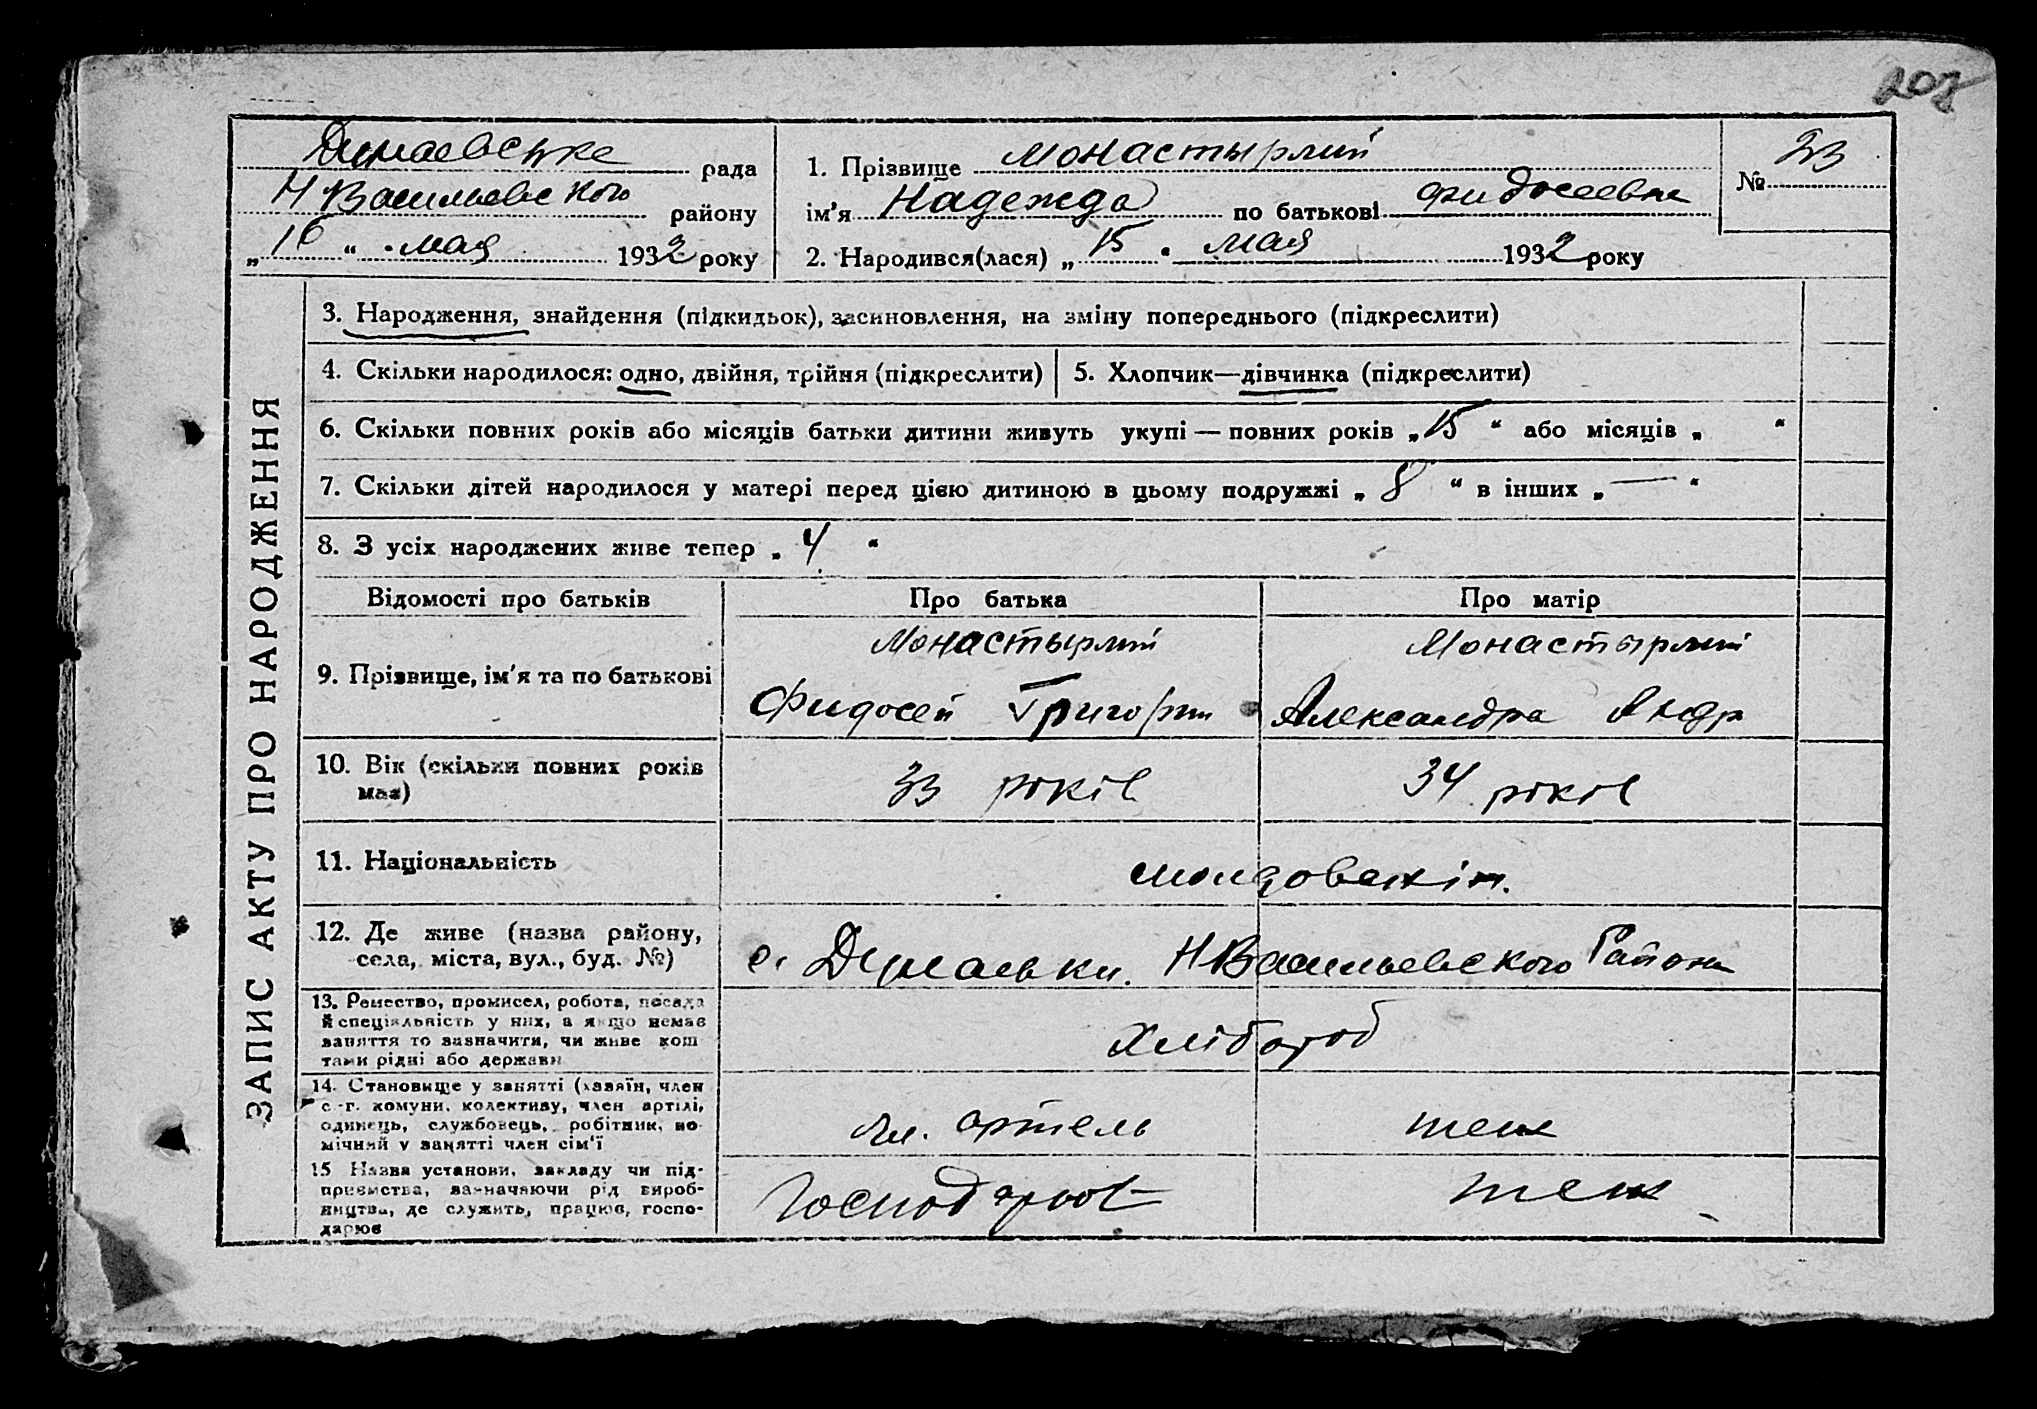 208
Дунаевське рада
Н Васильевского району
„16“ мая 1932 року
1. Прізвище Монастырлий
ім'я Надежда по батькові Фидосеевна
2. Народився(лася) „15“ мая 1932 року
№ 33
ЗАПИС АКТУ ПРО НАРОДЖЕННЯ
3. Народження, знайдення (підкидьок), засиновлення, на зміну попереднього (підкреслити)
4. Скільки народилося: одно, двійня, трійня (підкреслити)
5. Хлопчик—дівчинка (підкреслити)
6. Скільки повних років або місяців батьки дитини живуть укупі — повних років „15“ або місяців „ “
7. Скільки дітей народилося у матері перед цією дитиною в цьому подружжі „8“ в інших „—“
8. З усіх народжених живе тепер „4“
Відомості про батьків
Про батька
Про матір
9. Прізвище, ім'я та по батькові
Монастырлий
Фидосей Григорий
Монастырлий
Александра Андр
10. Вік (скільки повних років
має)
33 років
34 років
11. Національність
молдованін.
12. Де живе (назва району,
села, міста, вул., буд. №)
с. Дунаевки. Н Васильевского Района
13. Ремество, промисел, робота, посада
й спеціяльність у них, а якщо немає
заняття то зазначити, чи живе кош
тами рідні або держави
Хлібороб
14. Становище у занятті (хазяїн, член
с.-г. комуни, колективу, член артілі,
одинець, службовець, робітник, по-
мічний у занятті член сім'ї
чл. артель
теж
15 Назва установи, закладу чи під-
приємства, зазначаючи рід вироб-
ництва, де служить, працює, госпо-
дарює
Господарює
теж